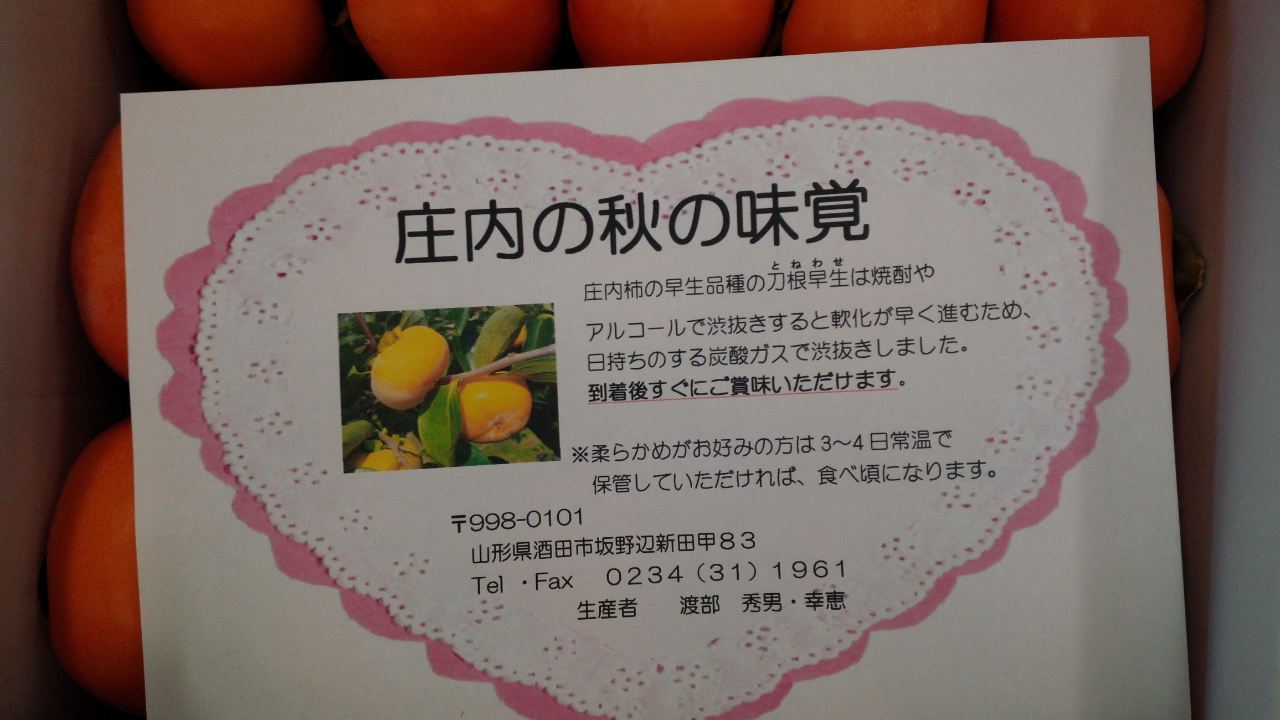 庄内の秋の味覚
庄内柿の早生品種の刀根早生は焼酎や
とねわせ
アルコールで渋抜きすると軟化が早く進むため、
日持ちのする炭酸ガスで渋抜きしました。
到着後すぐにご賞味いただけます。
※柔らかめがお好みの方は3〜4日常温で
保管していただければ、食べ頃になります。
〒998-0101
山形県酒田市坂野辺新田甲83
Tel ・Fax 0234（31）1961
生産者 渡部 秀男・幸恵